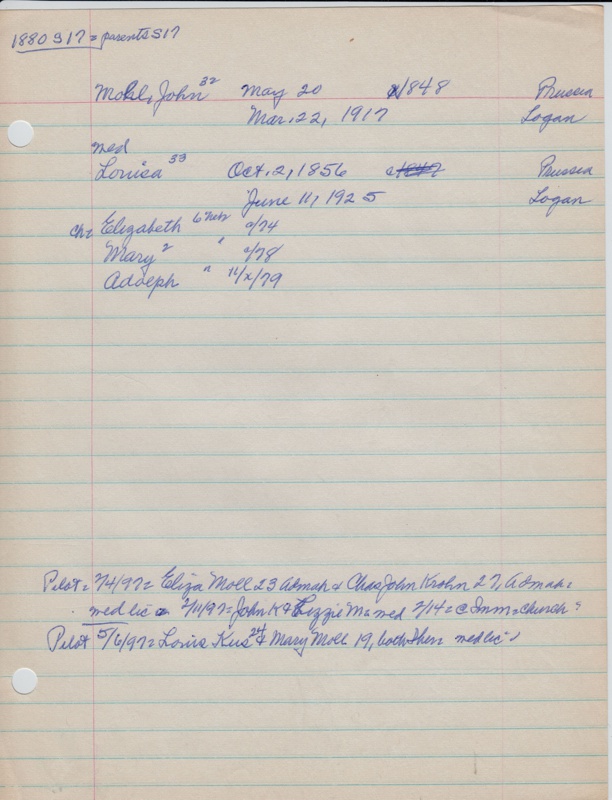 1880 S17 = parents S17
Mohl, John 32 May 20 c/1848 Prussia
Mar. 22, 1917 Logan
med
Louisa 33 Oct. 2, 1856 c1847 Prussia
June 11, 1925 Logan
ch = Elizabeth 6 Nebr c/74
Mary 2 " c/78
Adolph " 11/x/79
Pilot = 2/4/97 = Eliza Moll 23 Admah & Chas John Krohn 27, Admah =
med lic 2/11/97 = John K & Lizzie M = med 2/14 = @ Imm = church =
Pilot 5/6/97 = Louis Kus 24 & Mary Moll 19, both Then med lic